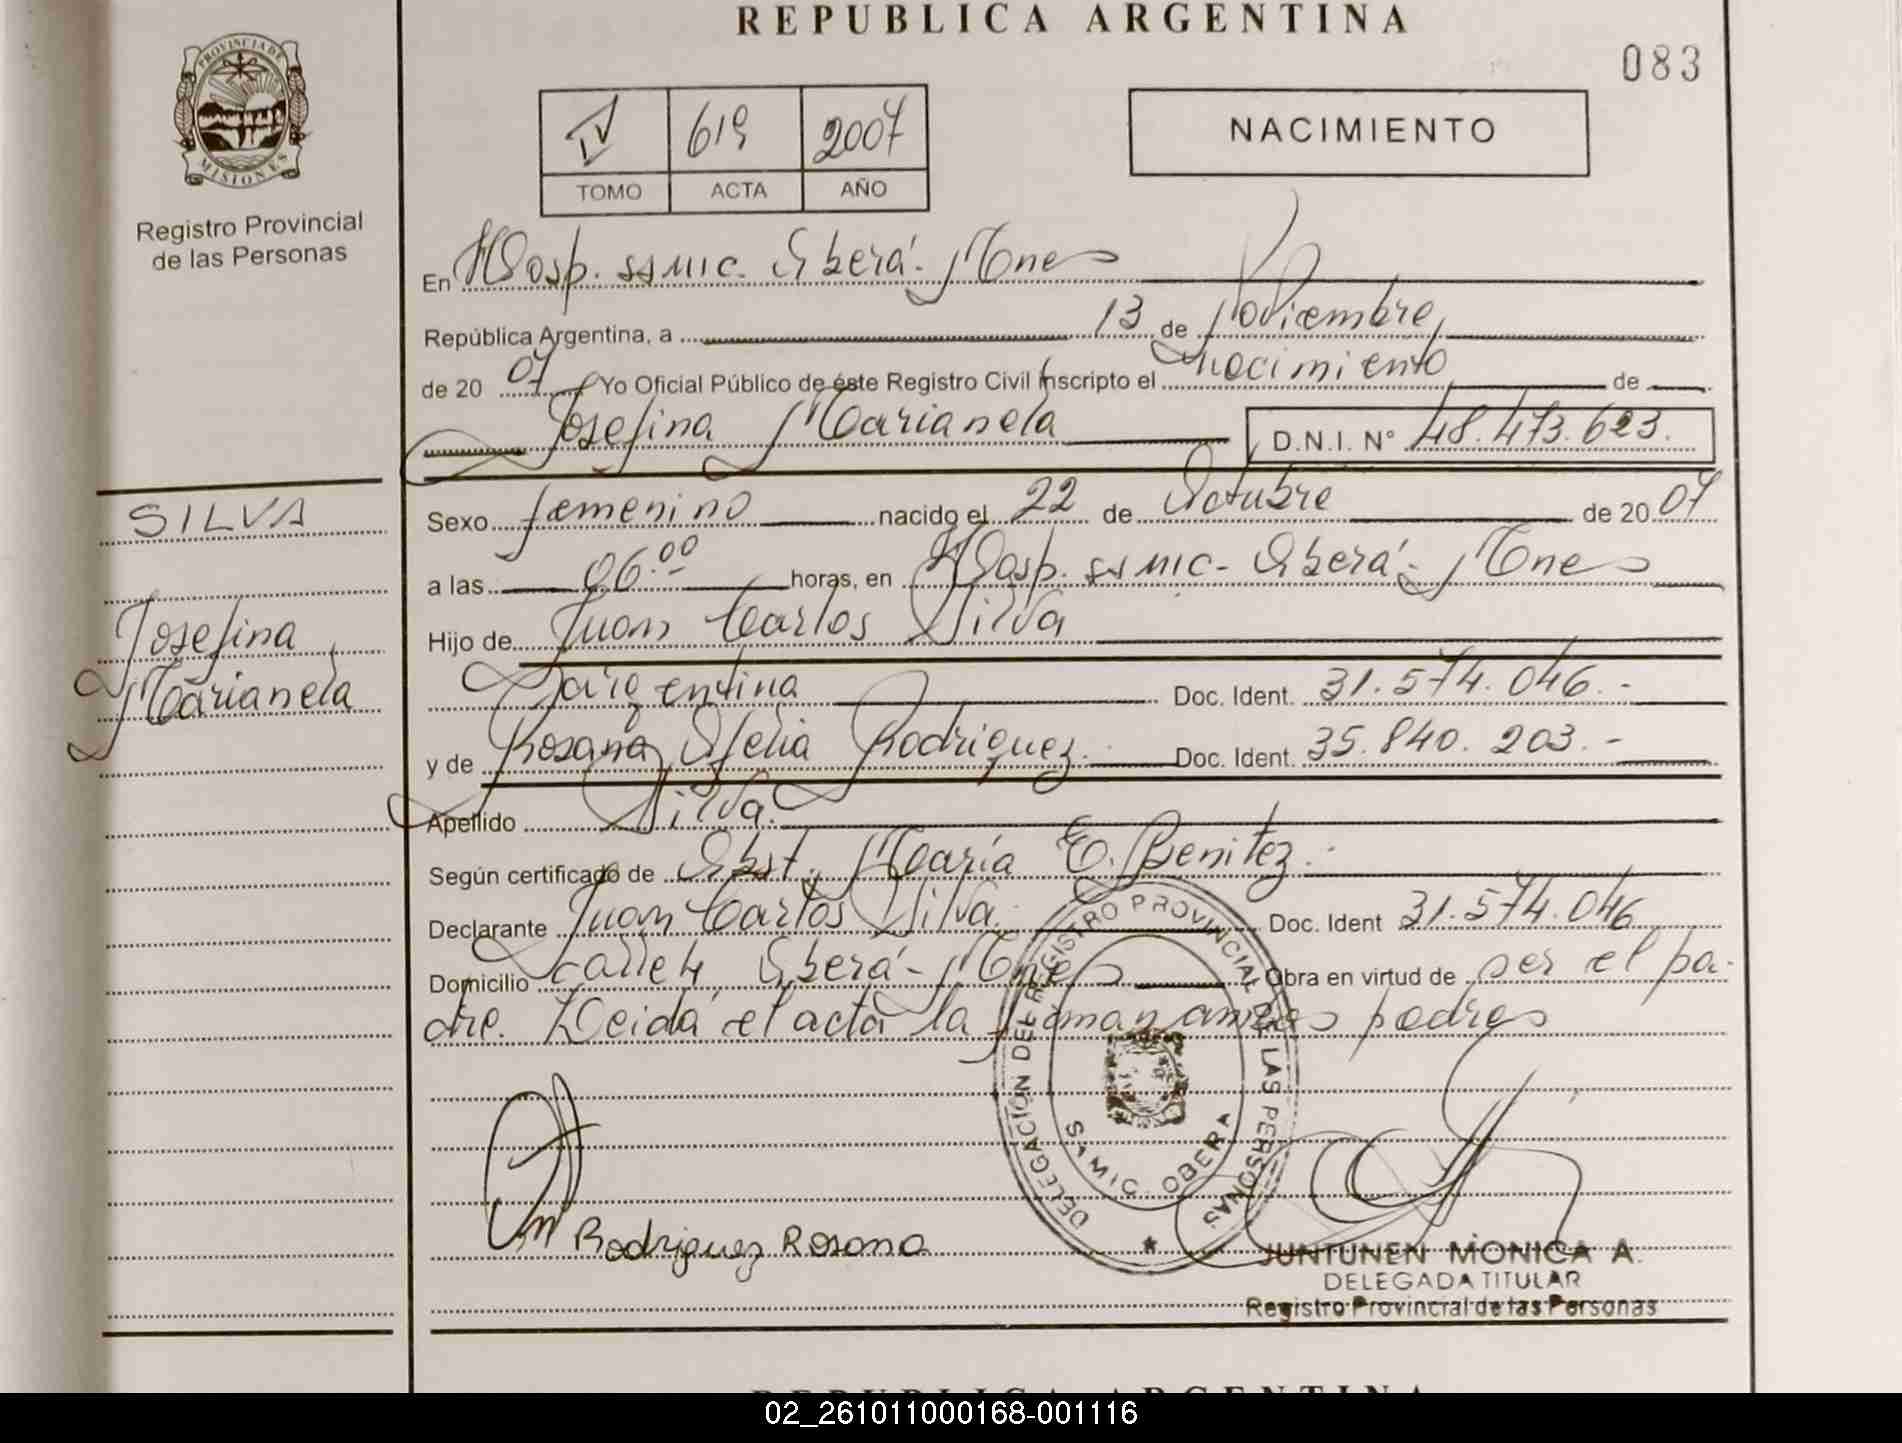 REPUBLICA ARGENTINA
083
PROVINCIA DE
MISIONES
Registro Provincial
de las Personas
IV 619 2007
TOMO ACTA AÑO
NACIMIENTO
En Hosp. SSMIC. Oberá - Mnes
República Argentina, a 13 de Noviembre
de 20 07 Yo Oficial Público de éste Registro Civil Inscripto el nacimiento de
Josefina Marianela D.N.I. N° 48.473.623.
SILVA
Josefina
Marianela
Sexo femenino nacido el 22 de Octubre de 20 07
a las 06.00 horas, en Hosp. SSMIC - Oberá - Mnes
Hijo de Juan Carlos Silva
Argentina Doc. Ident. 31.574.046.-
y de Rosana Ofelia Rodriguez. Doc. Ident. 35.840.203.-
Apellido Silva.
Según certificado de Obst. María E. Benitez.
Declarante Juan Carlos Silva. Doc. Ident 31.574.046
Domicilio Oberá - Mnes Obra en virtud de ser el pa-
dre. Leida el acta la firman ambos padres
DELEGACION DEL REGISTRO PROVINCIAL DE LAS PERSONAS
SAMIC OBERA
Rodriguez Rosana
JUNTUNEN MONICA A.
DELEGADA TITULAR
Registro Provincial de las Personas
REPUBLICA ARGENTINA
02_261011000168-001116